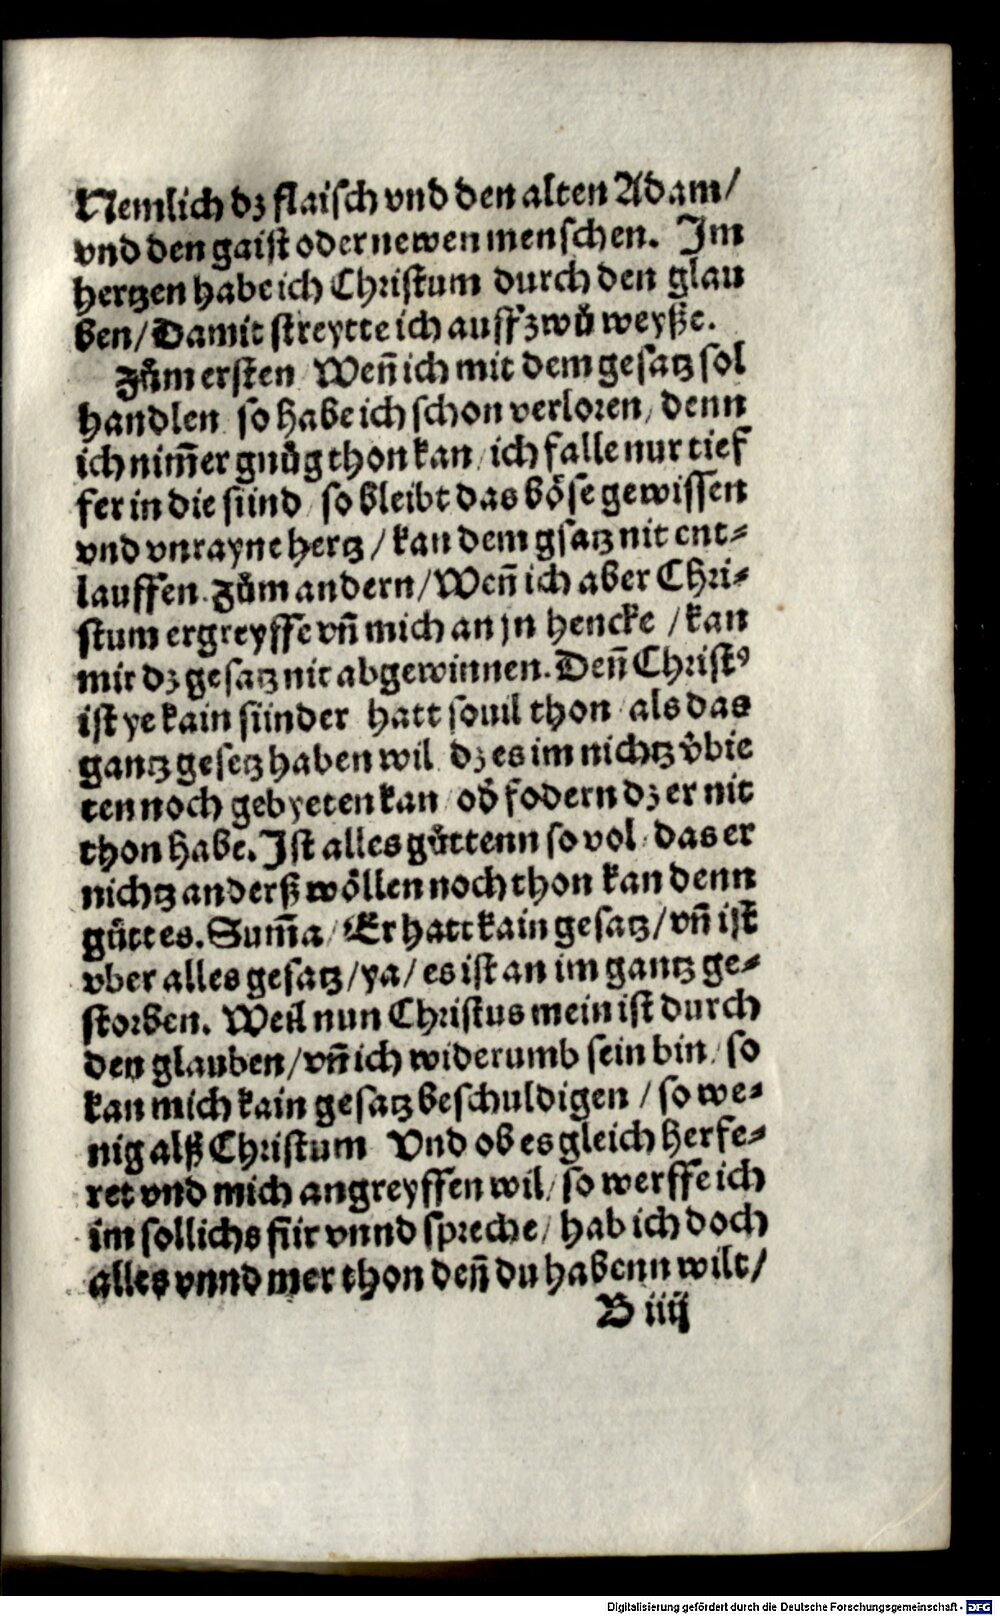 Nemlich dz flaisch vnd den alten Adam/
vnd den gaist oder newen menschen. Im
hertzen habe ich Christum durch den glau
ben/ Damit streytte ich auff zwů weyße.
Zům ersten Weñ ich mit dem gesatz sol
handlen so habe ich schon verloren/ denn
ich nim̃er gnůg thon kan/ ich falle nur tief
fer in die sünd/ so bleibt das böse gewissen
vnd vnrayne hertz/ kan dem gsatz nit ent⸗
lauffen. Zům andern/ Weñ ich aber Chri⸗
stum ergreyffe vñ mich an jn hencke/ kan
mir dz gesatz nit abgewinnen. Deñ Christꝰ
ist ye kain sünder hatt souil thon/ als das
gantz gesetz haben wil/ dz es im nichtz v̊bie
ten noch gebyeten kan/ od̓ fodern dz er nit
thon habe. Ist alles gůttenn so vol/ das er
nichtz anderß wöllen noch thon kan denn
gůttes. Sum̃a/ Er hatt kain gesatz/ vñ ist
vber alles gesatz/ ya/ es ist an im gantz ge⸗
storben. Weil nun Christus mein ist durch
den glauben/ vñ ich widerumb sein bin/ so
kan mich kain gesatz beschuldigen/ so we⸗
nig alß Christum Vnd ob es gleich herfe⸗
ret vnd mich angreyffen wil/ so werffe ich
im sollichs für vnnd spreche/ hab ich doch
alles vnnd mer thon deñ du habenn wilt/
B iiij
Digitalisierung gefördert durch die Deutsche Forschungsgemeinschaft - DFG